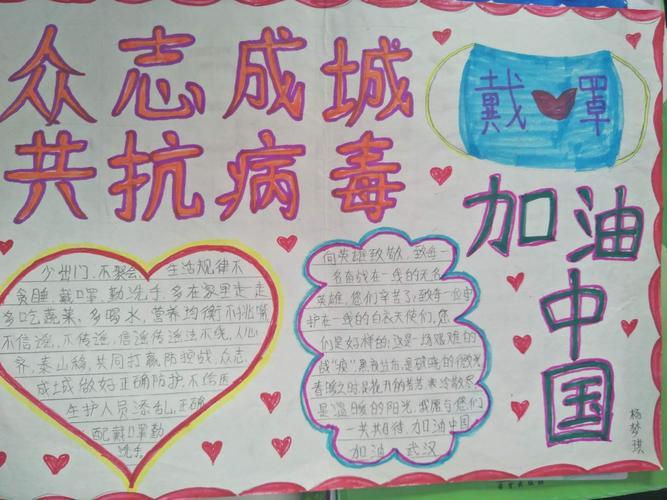 众志成城
共抗病毒
戴
罩
加油
中国
少出门、不聚会、生活规律不
贪睡、戴口罩、勤洗手、多在家里走走
多吃蔬菜、多喝水、营养均衡不挑食
不信谣、不传谣、信谣传谣法不饶、人心
齐、泰山移、共同打赢防控战、众志
成城做好正确防护、不给医
生护人员添乱、正确
配戴口罩勤
洗手
向英雄致敬、致每一
名奋战在一线的无名
英雄、您们辛苦了、致每一位守
护在一线的白衣天使们、您
们是好样的、这是一场艰难的
战"疫"黑夜
是破晓的微光
是温暖的阳光、我愿与您们
一共共日待、加油中国
加油 武汉
杨梦琪